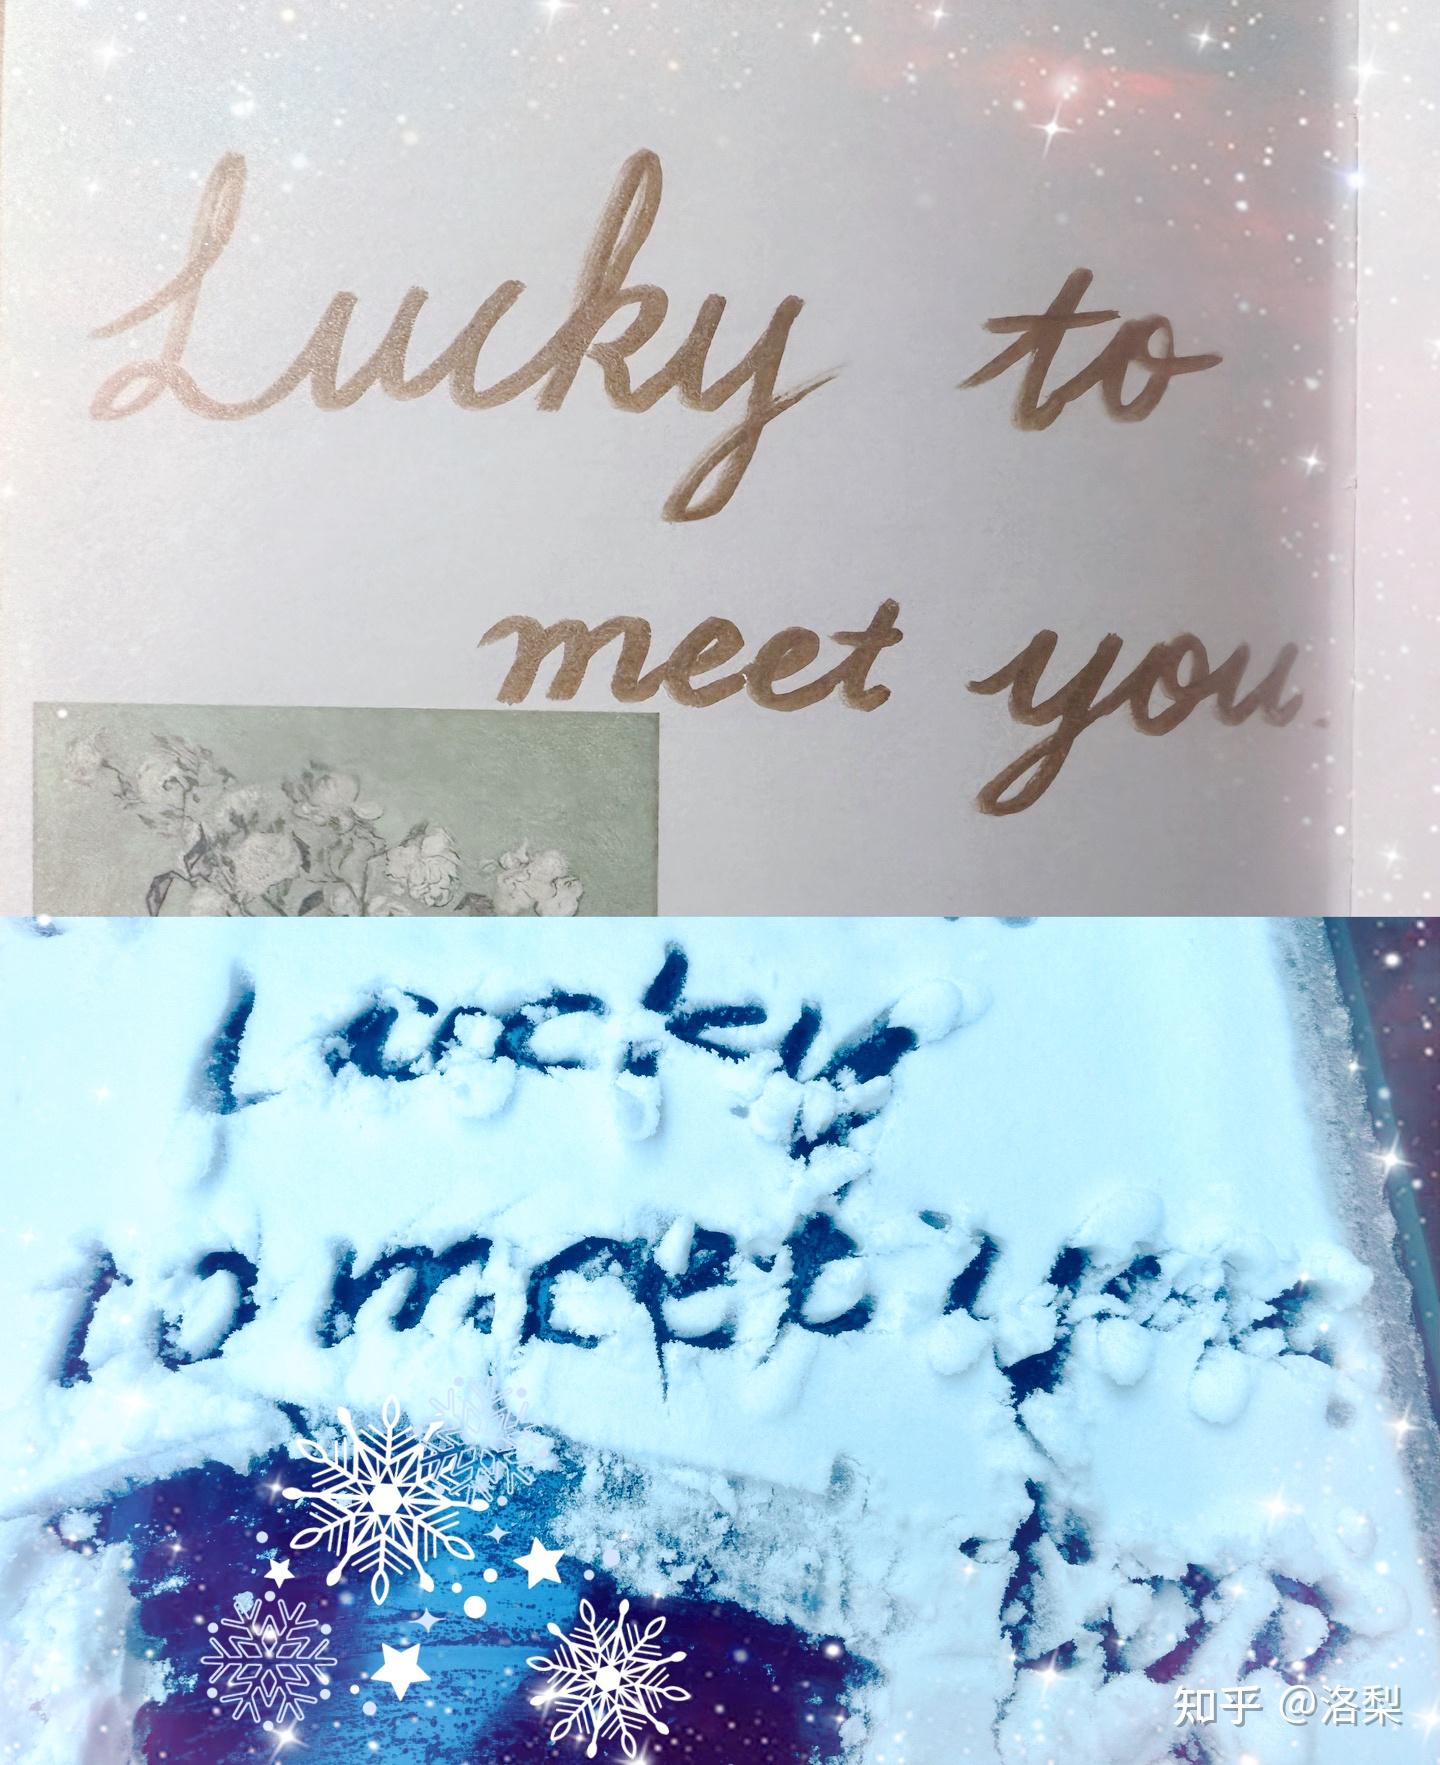 Lucky to
meet you.
Lucky
to meet you
too
知乎 @洛梨